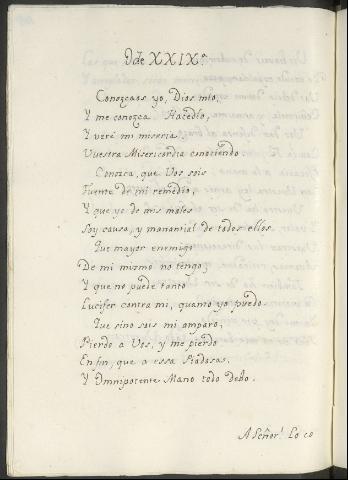 Ode XXIX.ª
Conozcaos yo, Dios mio,
Y me conozca Hacedlo,
Y veré mi miseria
Vuestra Misericordia conociendo
Conozca, que Vos sois
Fuente de mi remedio,
Y que yo de mis males
Soy causa, y manantial de todos ellos.
Que mayor enemigo
De mi mismo no tengo;
Y que no puede tanto
Lucifer contra mi, quanto yo puedo.
Que sino sois mi amparo,
Pierdo a Vos, y me pierdo
En fin, que a essa Piadosas,
Y Omnipotente Mano todo debo.
A Señor! Lo co